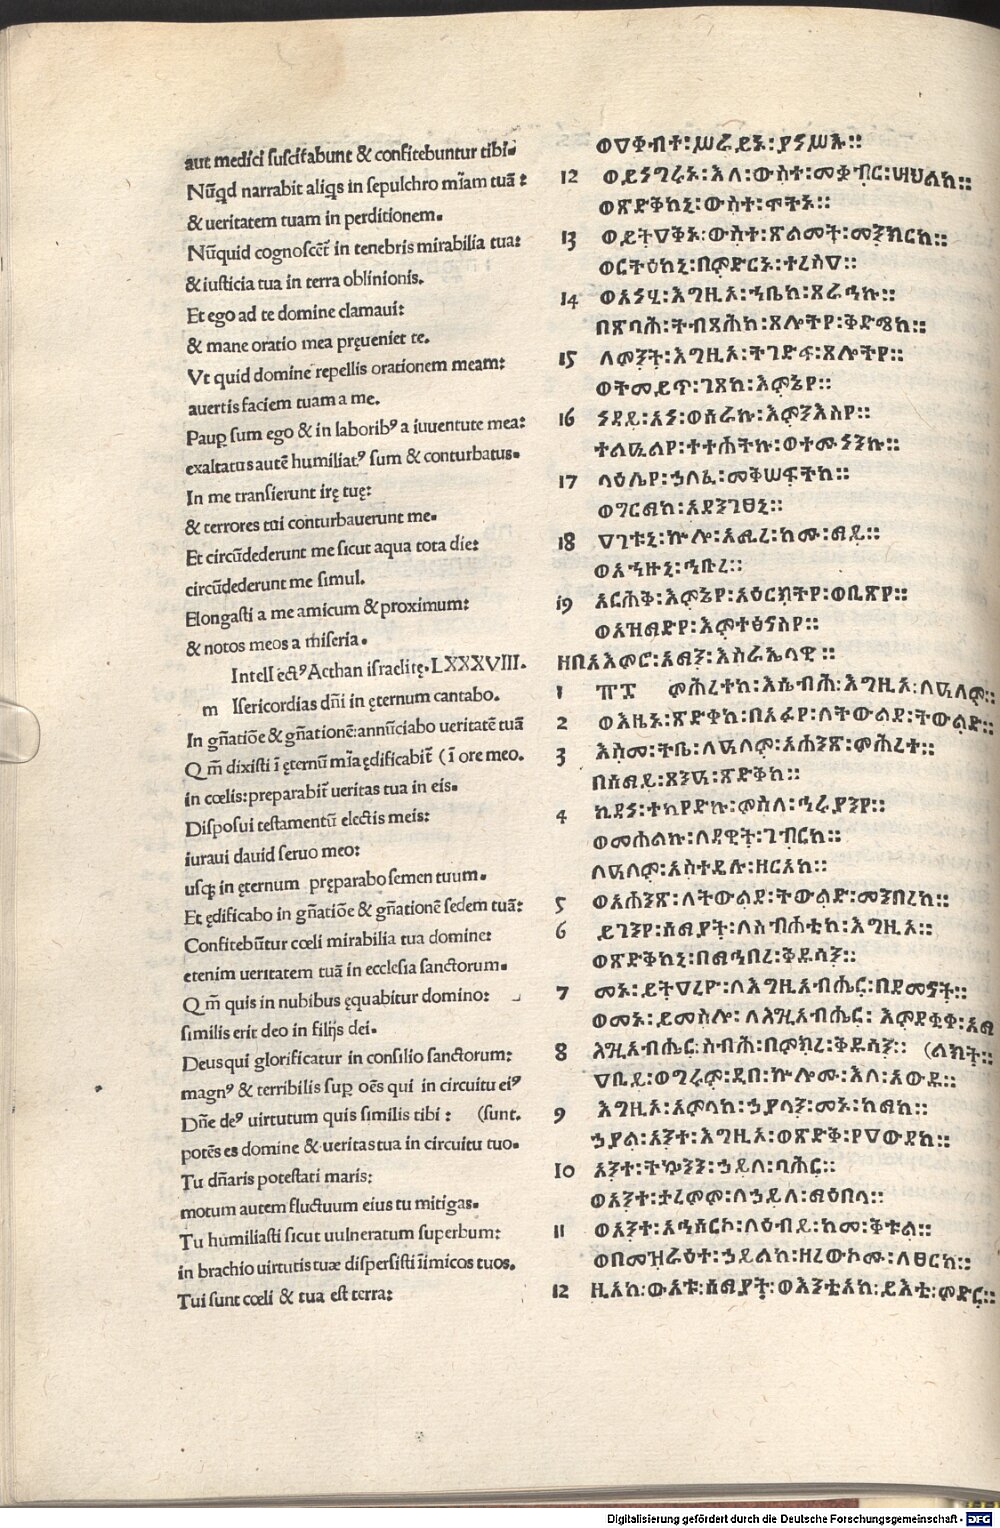 aut medici suscitabunt & confitebuntur tibi.
Nũqd narrabit aliqs in sepulchro mĩam tuã:
& ueritatem tuam in perditionem.
Nũquid cognoscẽt in tenebris mirabilia tua:
& iusticia tua in terra oblinionis.
Et ego ad te domine clamaui:
& mane oratio mea pręueniet te.
Vt quid domine repellis orationem meam:
auertis faciem tuam a me.
Paup sum ego & in laboribꝰ a iuuentute mea:
exaltatus autẽ humiliatꝰ sum & conturbatus.
In me transierunt irę tuę:
& terrores tui conturbauerunt me.
Et circũdederunt me sicut aqua tota die:
circũdederunt me simul.
Elongasti a me amicum & proximum:
& notos meos a miseria.
Intellectꝰ Aethan israelitę. LXXXVIII.
m Isericordias dñi in ęternum cantabo.
In gñatiõe & gñationẽ: annũciabo ueritatẽ tuã
Qm̃ dixisti ĩ ęternũ mĩa ędificabit̃ (ĩ ore meo.
in cœlis: preparabit̃ ueritas tua in eis.
Disposui testamentũ electis meis:
iuraui dauid seruo meo:
usq; in ęternum pręparabo semen tuum.
Et ędificabo in gñatiõe & gñationẽ sedem tuã:
Confitebũtur cœli mirabilia tua domine:
etenim ueritatem tuã in ecclesia sanctorum.
Qm̃ quis in nubibus ęquabitur domino:
similis erit deo in filijs dei.
Deus qui glorificatur in consilio sanctorum:
magnꝰ & terribilis sup oẽs qui in circuitu eiꝰ
Dñe deꝰ uirtutum quis similis tibi: (sunt.
potẽs es domine & ueritas tua in circuitu tuo.
Tu dñaris potestati maris:
motum autem fluctuum eius tu mitigas.
Tu humiliasti sicut uulneratum superbum:
in brachio uirtutis tuæ dispersisti iĩmicos tuos.
Tui sunt cœli & tua est terra:
ወዐቀብተ፡ሥራይኑ፡ያነሥኡ።
12 ወይነግሩኑ፡እለ፡ውስተ፡መቃብር፡ሣህልከ።
ወጽድቅከኒ፡ውስተ፡ሞትኑ።
13 ወይትዐቅኑ፡ውስተ፡ጽልመት፡መንክርከ።
ወርትዕከኒ፡በምድርኑ፡ተረስዐ።
14 ወአነሂ፡እግዚኦ፡ኀቤከ፡ጸራኅኩ።
በጽባሕ፡ትብጻሕከ፡ጸሎትየ፡ቅድሜከ።
15 ለምንት፡እግዚኦ፡ትገድፍ፡ጸሎትየ።
ወትመይጥ፡ገጸከ፡እምኔየ።
16 ነዳይ፡አነ፡ወሰራኩ፡እምንእስየ።
ተልዒልየ፡ተተሐትኩ፡ወተመነንኩ።
17 ላዕሌየ፡ኃለፈ፡መቅሠፍትከ።
ወግርማከ፡አደንገፀኒ።
18 ዐገቱኒ፡ኵሎ፡አሚረ፡ከመ፡ማይ።
ወአኀዙኒ፡ኅቡረ።
19 አርሐቅ፡እምኔየ፡አዕርክትየ፡ወቢጽየ።
ወአዝማድየ፡እምተፅናስየ።
ዘበአእምሮ፡አማን፡እስራኤላዊ።
1 ፹፰ ምሕረተከ፡እሴብሕ፡እግዚኦ፡ለዓለም።
2 ወእዜኑ፡ጽድቀከ፡በአፉየ፡ለትውልደ፡ትውልድ።
3 እስመ፡ትቤ፡ለዓለም፡አሐንጽ፡ምሕረተ።
በሰማይ፡ጸንዓ፡ጽድቅከ።
4 ኪዳነ፡ተካየድኩ፡ምስለ፡ኅሩያንየ።
ወመሐልኩ፡ለዳዊት፡ገብርከ።
ለዓለም፡አስተዴሉ፡ዘርአከ።
5 ወአሐንጽ፡ለትውልደ፡ትውልድ፡መንበረከ።
6 ይገንየ፡ሰማያት፡ለስብሐቲከ፡እግዚኦ።
ወጽድቅከኒ፡በማኅበረ፡ቅዱሳን።
7 መኑ፡ይትዐረዮ፡ለእግዚአብሔር፡በደመናት።
ወመኑ፡ይመስሎ፡ለእግዚአብሔር፡እምደቂቀ፡አማ
8 እግዚአብሔር፡ስብሕ፡በምክረ፡ቅዱሳን። (ልክት።
ዐቢይ፡ወግሩም፡ዲበ፡ኵሎሙ፡እለ፡አውዱ።
9 እግዚኦ፡አምላከ፡ኃያላን፡መኑ፡ከማከ።
ኃያል፡አንተ፡እግዚኦ፡ወጽድቅ፡የዐውደከ።
10 አንተ፡ትኴንን፡ኃይለ፡ባሕር።
ወአንተ፡ታረምም፡ለኃይለ፡ማዕበላ።
11 ወአንተ፡አኅሰርኮ፡ለዕቡይ፡ከመ፡ቅቱል።
ወበመዝራዕተ፡ኃይልከ፡ዘረውኮሙ፡ለፀርከ።
12 ዚአከ፡ውእቱ፡ሰማያት፡ወእንቲአከ፡ይእቲ፡ምድር።
Digitalisierung gefördert durch die Deutsche Forschungsgemeinschaft - DFG